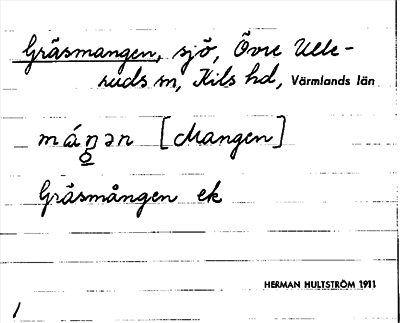 Gräsmangen, sjö, Övre Ulle-
ruds sn, Kils hd, Värmlands län
máŋ̱ən [Mangen]
Gräsmången ek
HERMAN HULTSTRÖM 1911
1